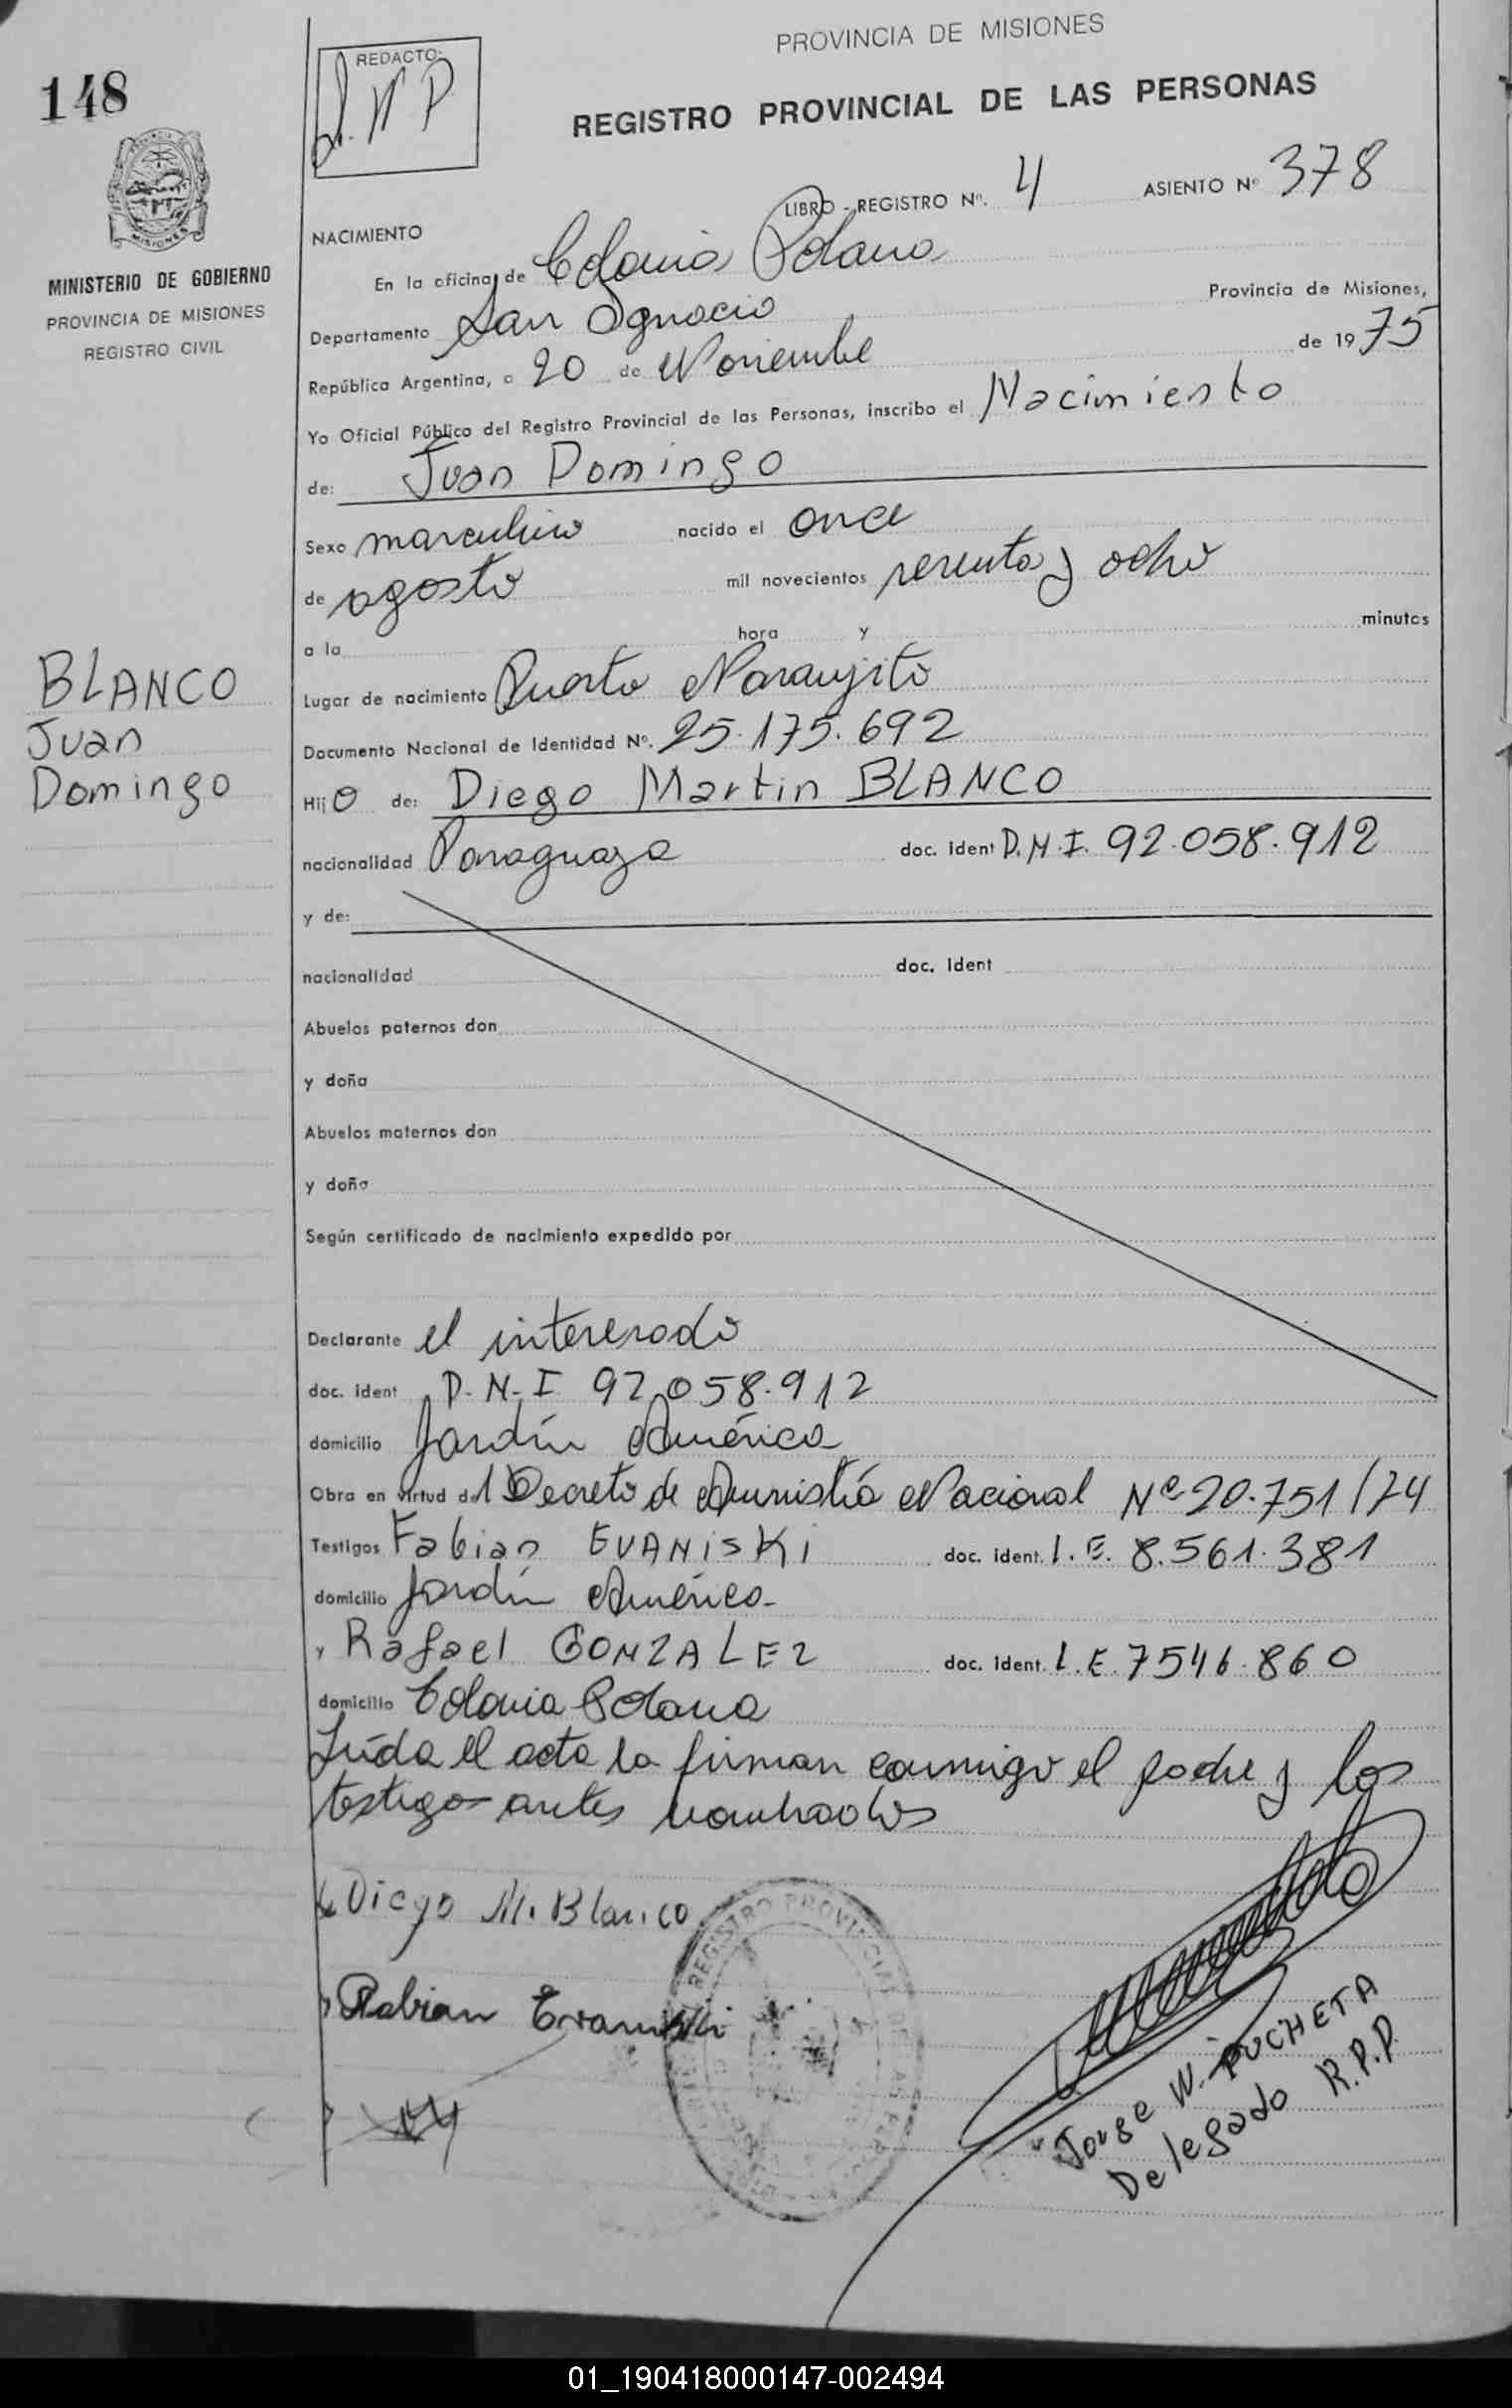 148
REDACTO:
PROVINCIA DE MISIONES
REGISTRO PROVINCIAL DE LAS PERSONAS
LIBRO - REGISTRO Nº. 4 ASIENTO Nº 378
MINISTERIO DE GOBIERNO
PROVINCIA DE MISIONES
REGISTRO CIVIL
NACIMIENTO
En la oficina de Colonia Polana
Departamento San Ignacio Provincia de Misiones,
República Argentina, a 20 de Noviembre de 1975
Yo Oficial Público del Registro Provincial de las Personas, inscribo el Nacimiento
de: Juan Domingo
Sexo masculino nacido el once
de agosto mil novecientos sesenta y ocho
a la hora y minutos
BLANCO
Juan
Domingo
Lugar de nacimiento Puerto Naranjito
Documento Nacional de Identidad Nº. 25.175.692
Hijo de: Diego Martin BLANCO
nacionalidad Paraguaya doc. ident D.N.I. 92.058.912
y de:
nacionalidad doc. ident
Abuelos paternos don
y doña
Abuelos maternos don
y doña
Según certificado de nacimiento expedido por
Declarante el interesado
doc. ident D.N.I 92.058.912
domicilio Jardín América
Obra en virtud del Decreto de Amnistía Nacional Nº 20.751/74
Testigos Fabian EVANISKI doc. ident. L.E. 8.561.381
domicilio Jardín América-
y Rafael GONZALEZ doc. ident. L.E. 7546.860
domicilio Colonia Polana
Leída el acta la firman conmigo el padre y los
testigos antes nombrados
Diego M. Blanco
Fabian Evaniski
REGISTRO PROVINCIAL DE LAS PERS
Jorge W. PUCHETA
Delegado R.P.P.
01_190418000147-002494